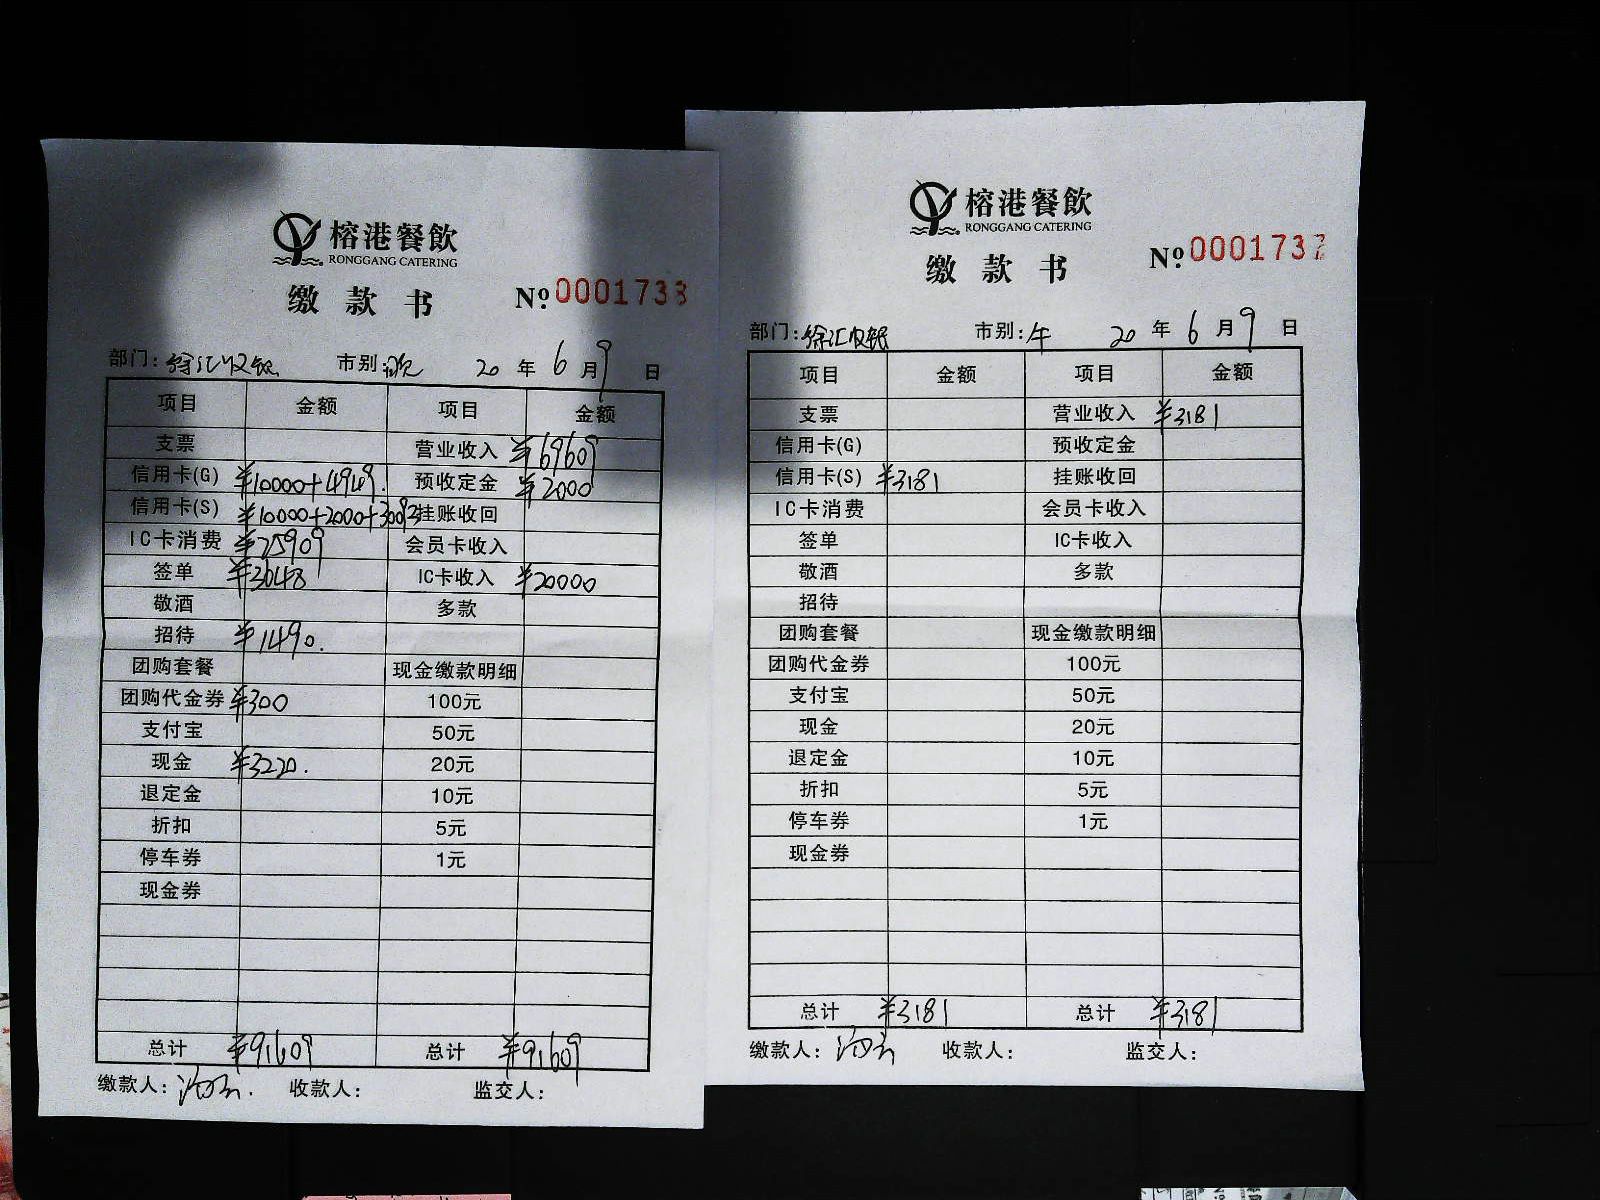 榕港餐飲
RONGGANG CATERING
缴款书
№ 0001738
部门: 徐汇收银 市别: 晚 20 年 6 月 9 日
项目 金额 项目 金额
支票 营业收入 ¥69609
信用卡(G) ¥10000+4949. 预收定金 ¥2000
信用卡(S) ¥10000+2000+30093 挂账收回
IC卡消费 ¥25909 会员卡收入
签单 ¥3648 IC卡收入 ¥20000
敬酒 多款
招待 ¥1490.
团购套餐 现金缴款明细
团购代金券 ¥300 100元
支付宝 50元
现金 ¥3220. 20元
退定金 10元
折扣 5元
停车券 1元
现金券
总计 ¥91609 总计 ¥91609
缴款人: 收款人: 监交人:
榕港餐飲
RONGGANG CATERING
缴款书
№ 0001737
部门: 徐汇收银 市别: 午 20 年 6 月 9 日
项目 金额 项目 金额
支票 营业收入 ¥3181
信用卡(G) 预收定金
信用卡(S) ¥3181 挂账收回
IC卡消费 会员卡收入
签单 IC卡收入
敬酒 多款
招待
团购套餐 现金缴款明细
团购代金券 100元
支付宝 50元
现金 20元
退定金 10元
折扣 5元
停车券 1元
现金券
总计 ¥3181 总计 ¥3181
缴款人: 收款人: 监交人: